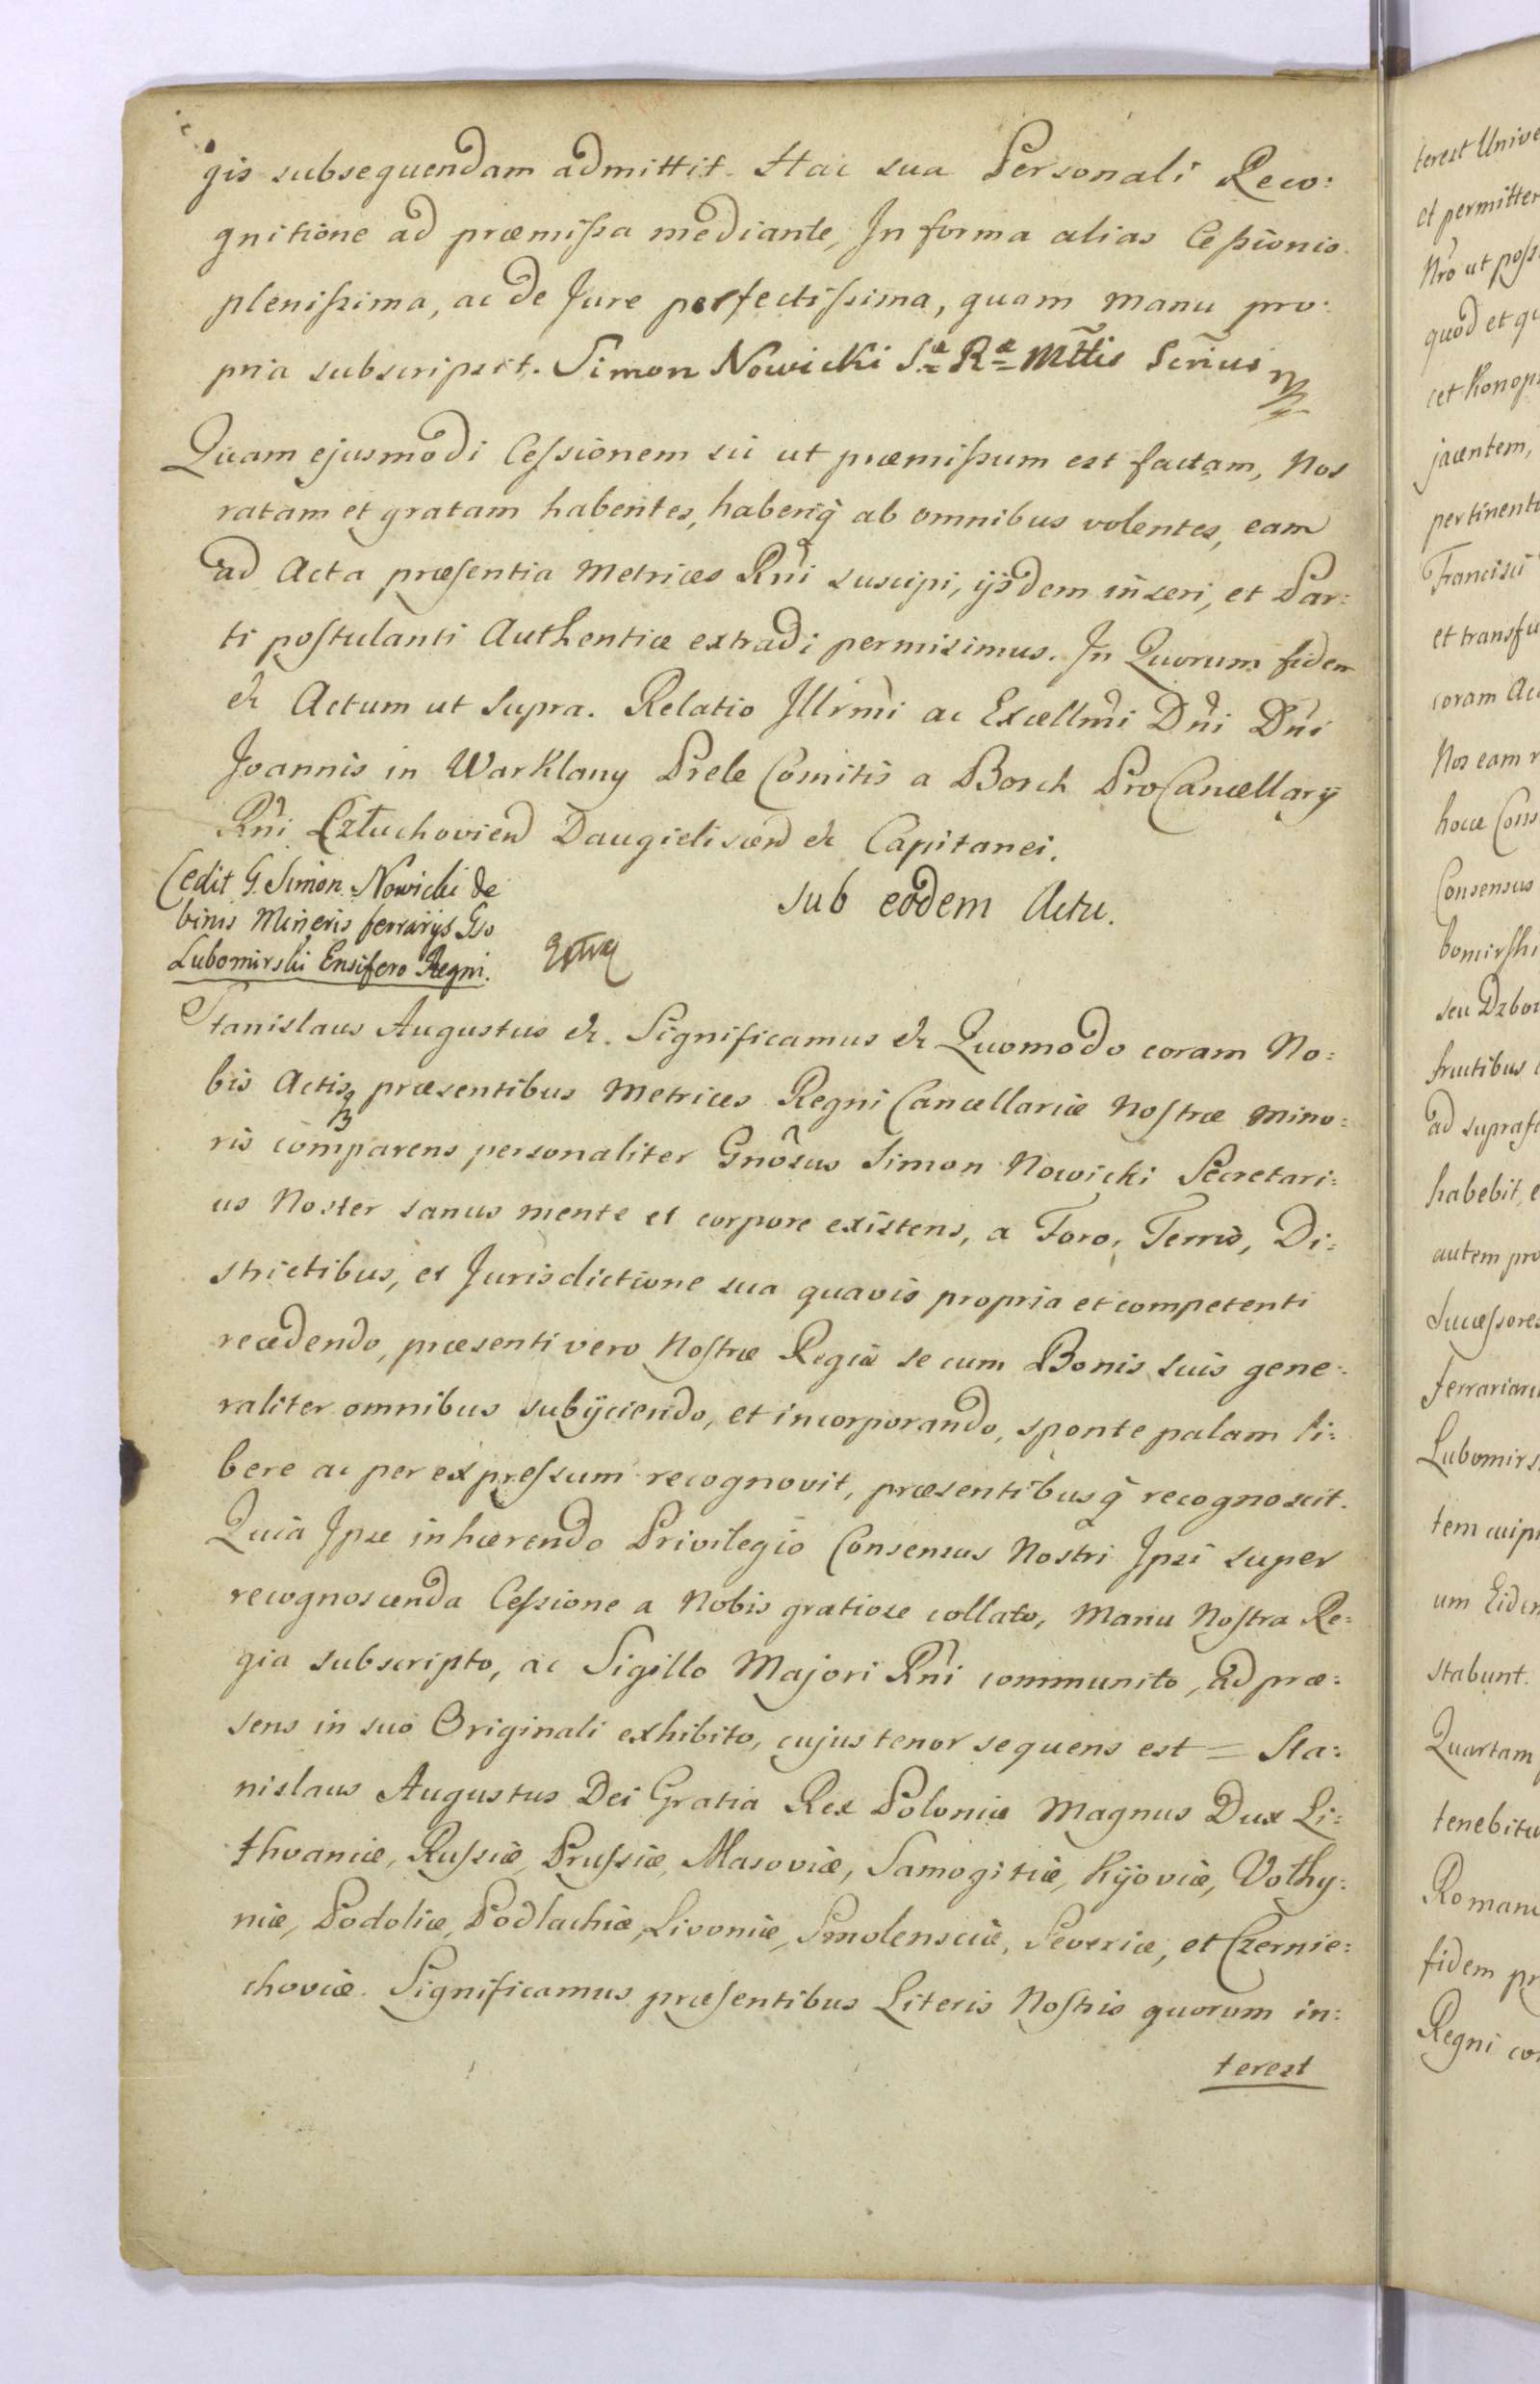 gis subsequendam admittit. Hac sua Personali Reco:
gnitione ad præmissa mediante, In forma alias Cessionis
plenissima, ac de Jure perfectissima, quam manu pro:
pria subscripsit. Simon Nowicki S.æ R.æ Mttis Scrius
Quam ejusmodi Cessionem sic ut præmissum est factam, Nos
ratam et gratam habentes, haberiq̃ ab omnibus volentes, eam
ad Acta præsentia Metrices Rni suscipi, ijsdem inseri, et Par:
ti postulanti Authentice extradi permisimus. In Quorum fidem
&c Actum ut supra. Relatio Jllrmi ac Excellmi Dni Dni
Joannis in Warklany Prele Comitis a Borch ProCancellarij
Rni Człuchovien Daugieliscen &c Capitanei.
Cedit G. Simon Nowicki de
binis Mineris ferrarijs Gso
Lubomirski Ensifero Regni.
sub eodem Actu.
Stanislaus Augustus &c. Significamus &c Quomodo coram No:
bis Actisq præsentibus Metrices Regni Cancellariæ Nostræ Mino:
ris comparens personaliter Gnosus Simon Nowicki Secretari:
us Noster sanus mente et corpore existens, a Foro, Terris, Di:
strictibus, et Jurisdictione sua quavis propria et competenti
recedendo, præsenti vero Nostræ Regiæ se cum Bonis suis gene:
raliter omnibus subijciendo, et incorporando, sponte palam li:
bere ac per expressum recognovit, præsentibusq̃ recognoscit.
Quia Ipse inhærendo Privilegio Consensus Nostri Ipsi super
recognoscenda Cessione a Nobis gratiose collato, Manu Nostra Re:
gia subscripto, ac Sigillo Majori Rni communito, ad præ:
sens in suo Originali exhibito, cujus tenor sequens est = Sta:
nislaus Augustus Dei Gratia Rex Poloniæ Magnus Dux Li:
thvaniæ, Russiæ, Prussiæ, Masoviæ, Samogitiæ, Kijoviæ, Volhy:
niæ, Podoliæ, Podlachiæ, Livoniæ, Smolensciæ, Severiæ, et Czernie:
choviæ. Significamus præsentibus Literis Nostris quorum in:
terest
terest Unive
et permitter
Nro ut poss
quod et qu
cet Konop
jacentem,
pertinenti
Francisci
et transfu
coram Ac
Nos eam r
hocce Cons
Consensus
bomirski
seu Dzbor
fructibus
ad supraf
habebit, e
autem pro
Successores
Ferrariaru
Lubomirs
tem cuip
um Eidem
stabunt.
Quartam
tenebitu
Romani
fidem pr
Regni co